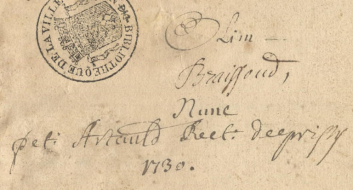 BIBLIOTHEQUE DE LA VILLE
Olim
Braissoud,
Nunc
pet: Artauld Rect:
1730.